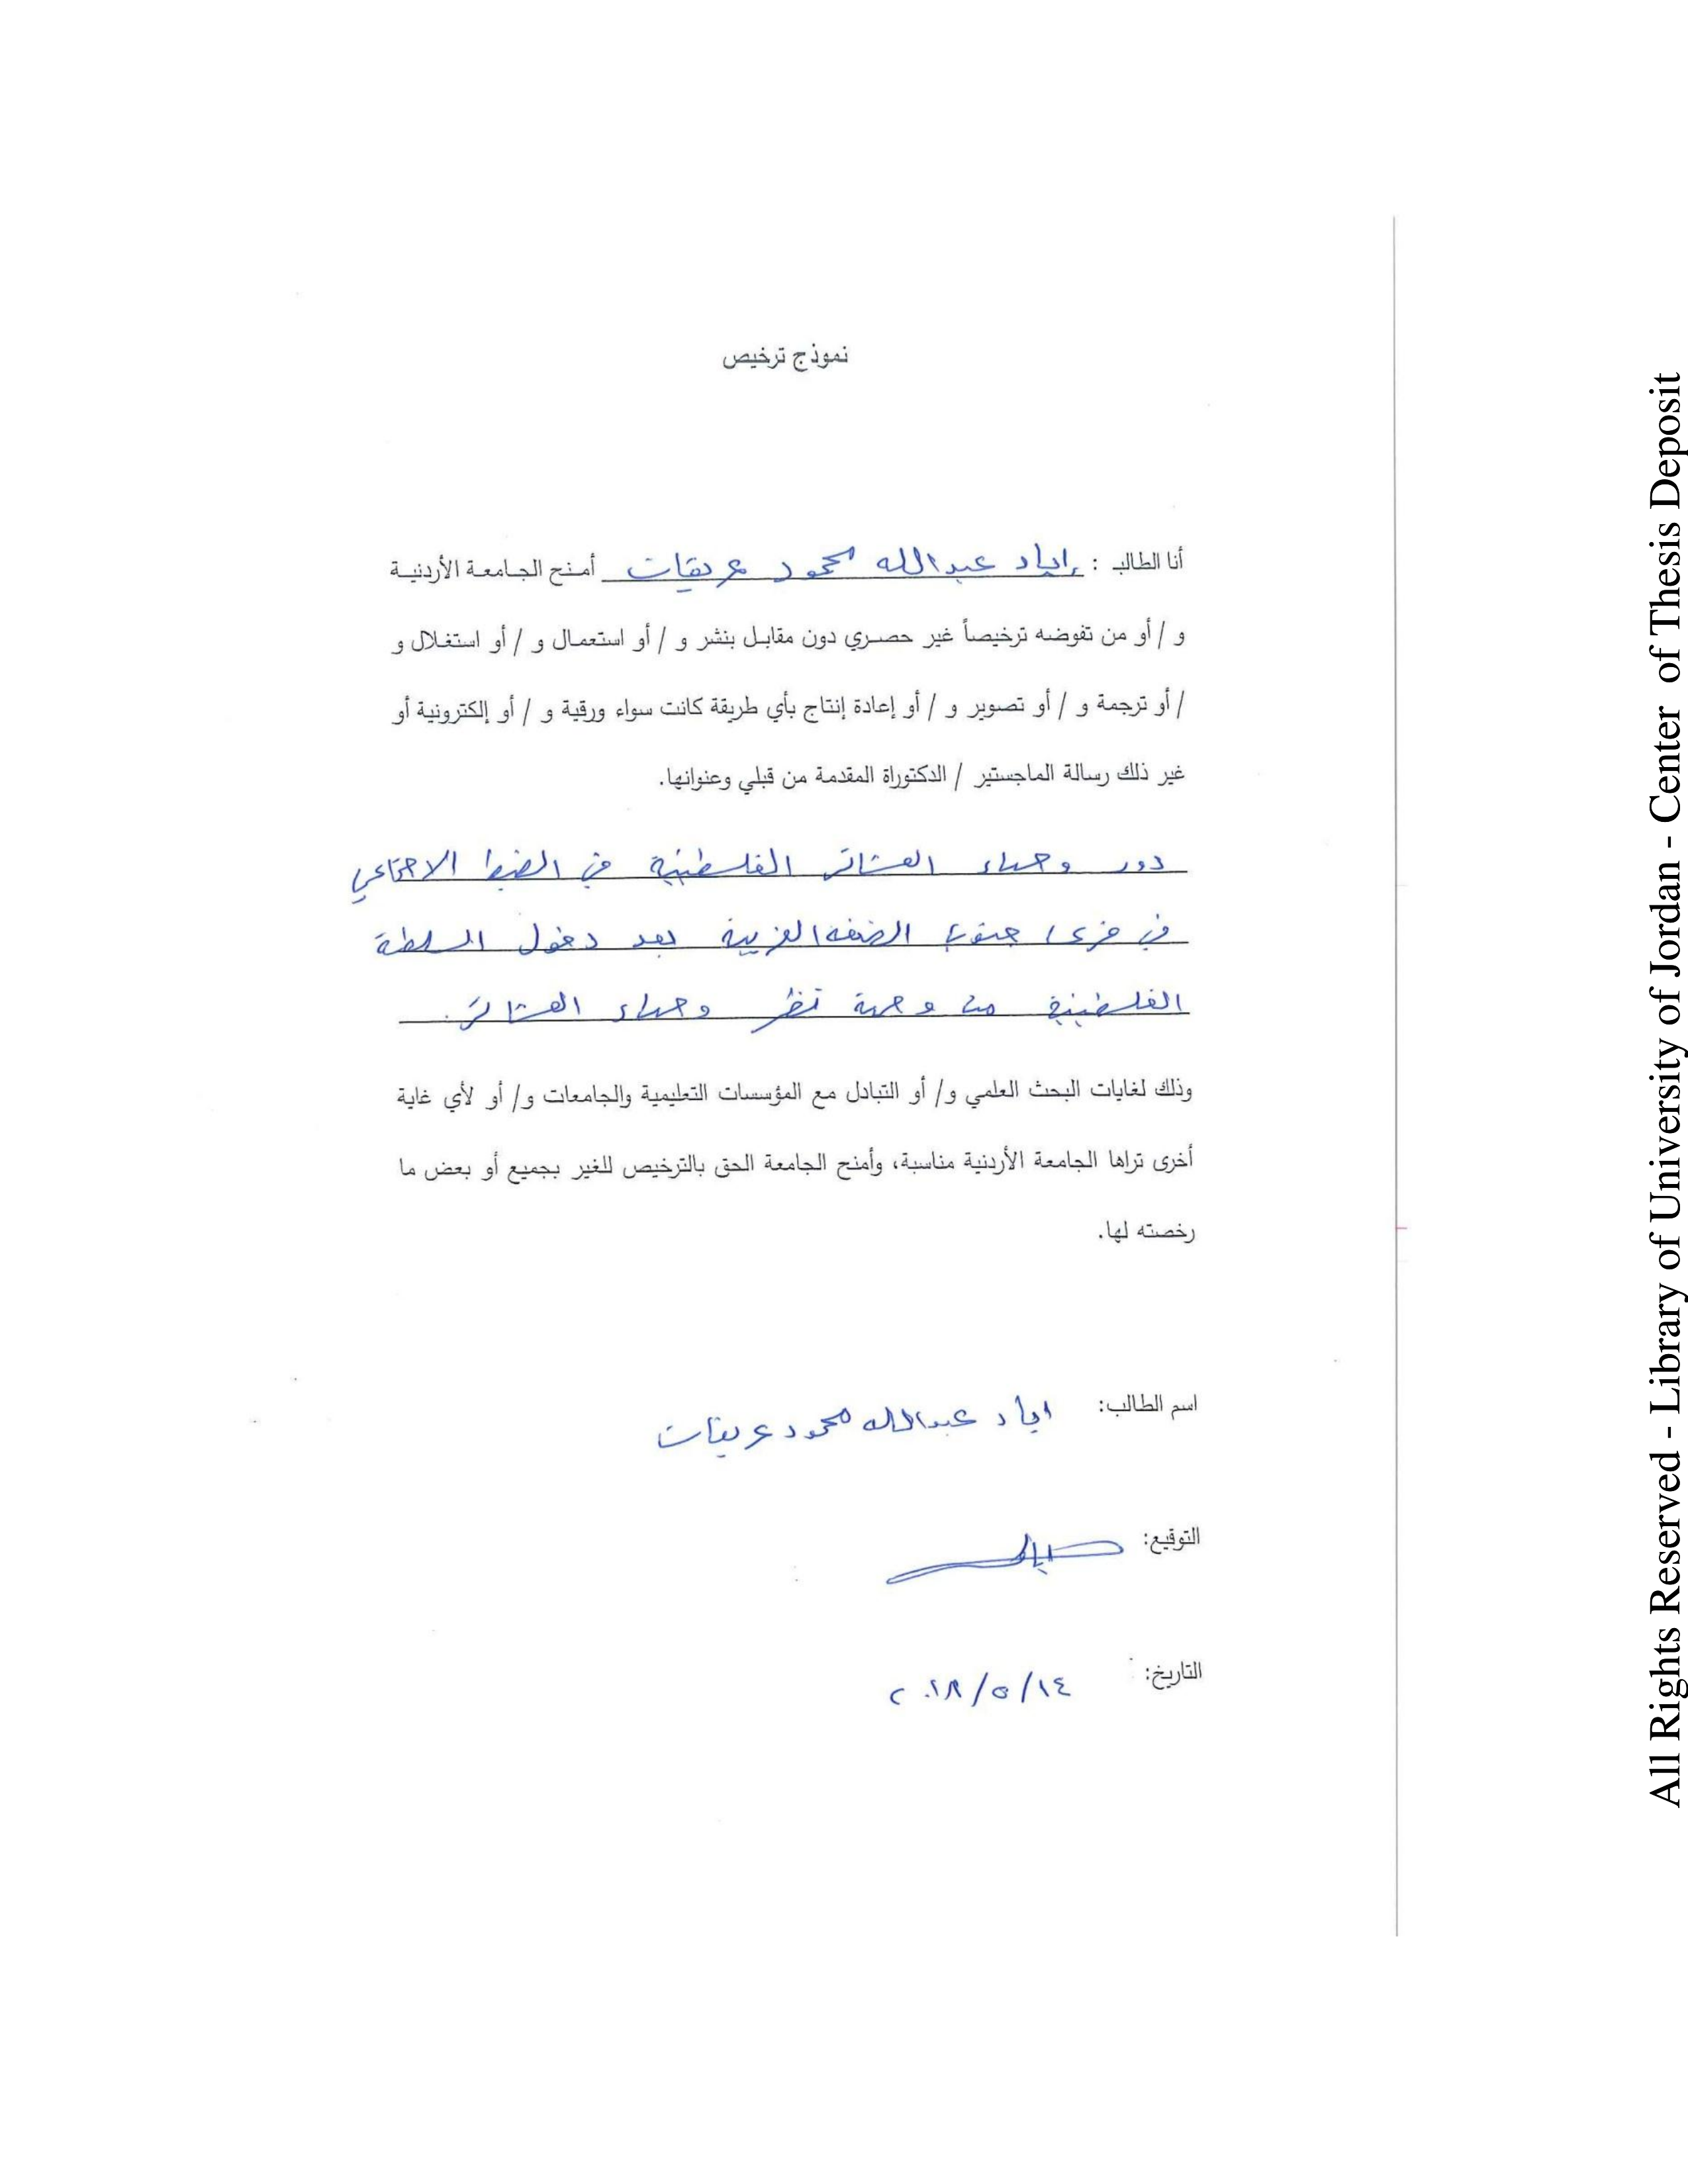 نموذج ترخيص
أنا الطالب : إياد عبدالله محمود عريقات أمنح الجامعة الأردنية
و / أو من تفوضه ترخيصاً غير حصري دون مقابل بنشر و / أو استعمال و / أو استغلال و
/ أو ترجمة و / أو تصوير و / أو إعادة إنتاج بأي طريقة كانت سواء ورقية و / أو إلكترونية أو
غير ذلك رسالة الماجستير / الدكتوراة المقدمة من قبلي وعنوانها.
دور وجهاء العشائر الفلسطينية في الضبط الاجتماعي
في قرى جنوب الضفه الغربية بعد دخول السلطة
الفلسطينية من وجهة نظر وجهاء العشائر.
وذلك لغايات البحث العلمي و/ أو التبادل مع المؤسسات التعليمية والجامعات و/ أو لأي غاية
أخرى تراها الجامعة الأردنية مناسبة، وأمنح الجامعة الحق بالترخيص للغير بجميع أو بعض ما
رخصته لها.
اسم الطالب: اياد عبدالله محمود عريقات
التوقيع:
التاريخ: ١٤/٥/٢٠١٨
All Rights Reserved - Library of University of Jordan - Center of Thesis Deposit